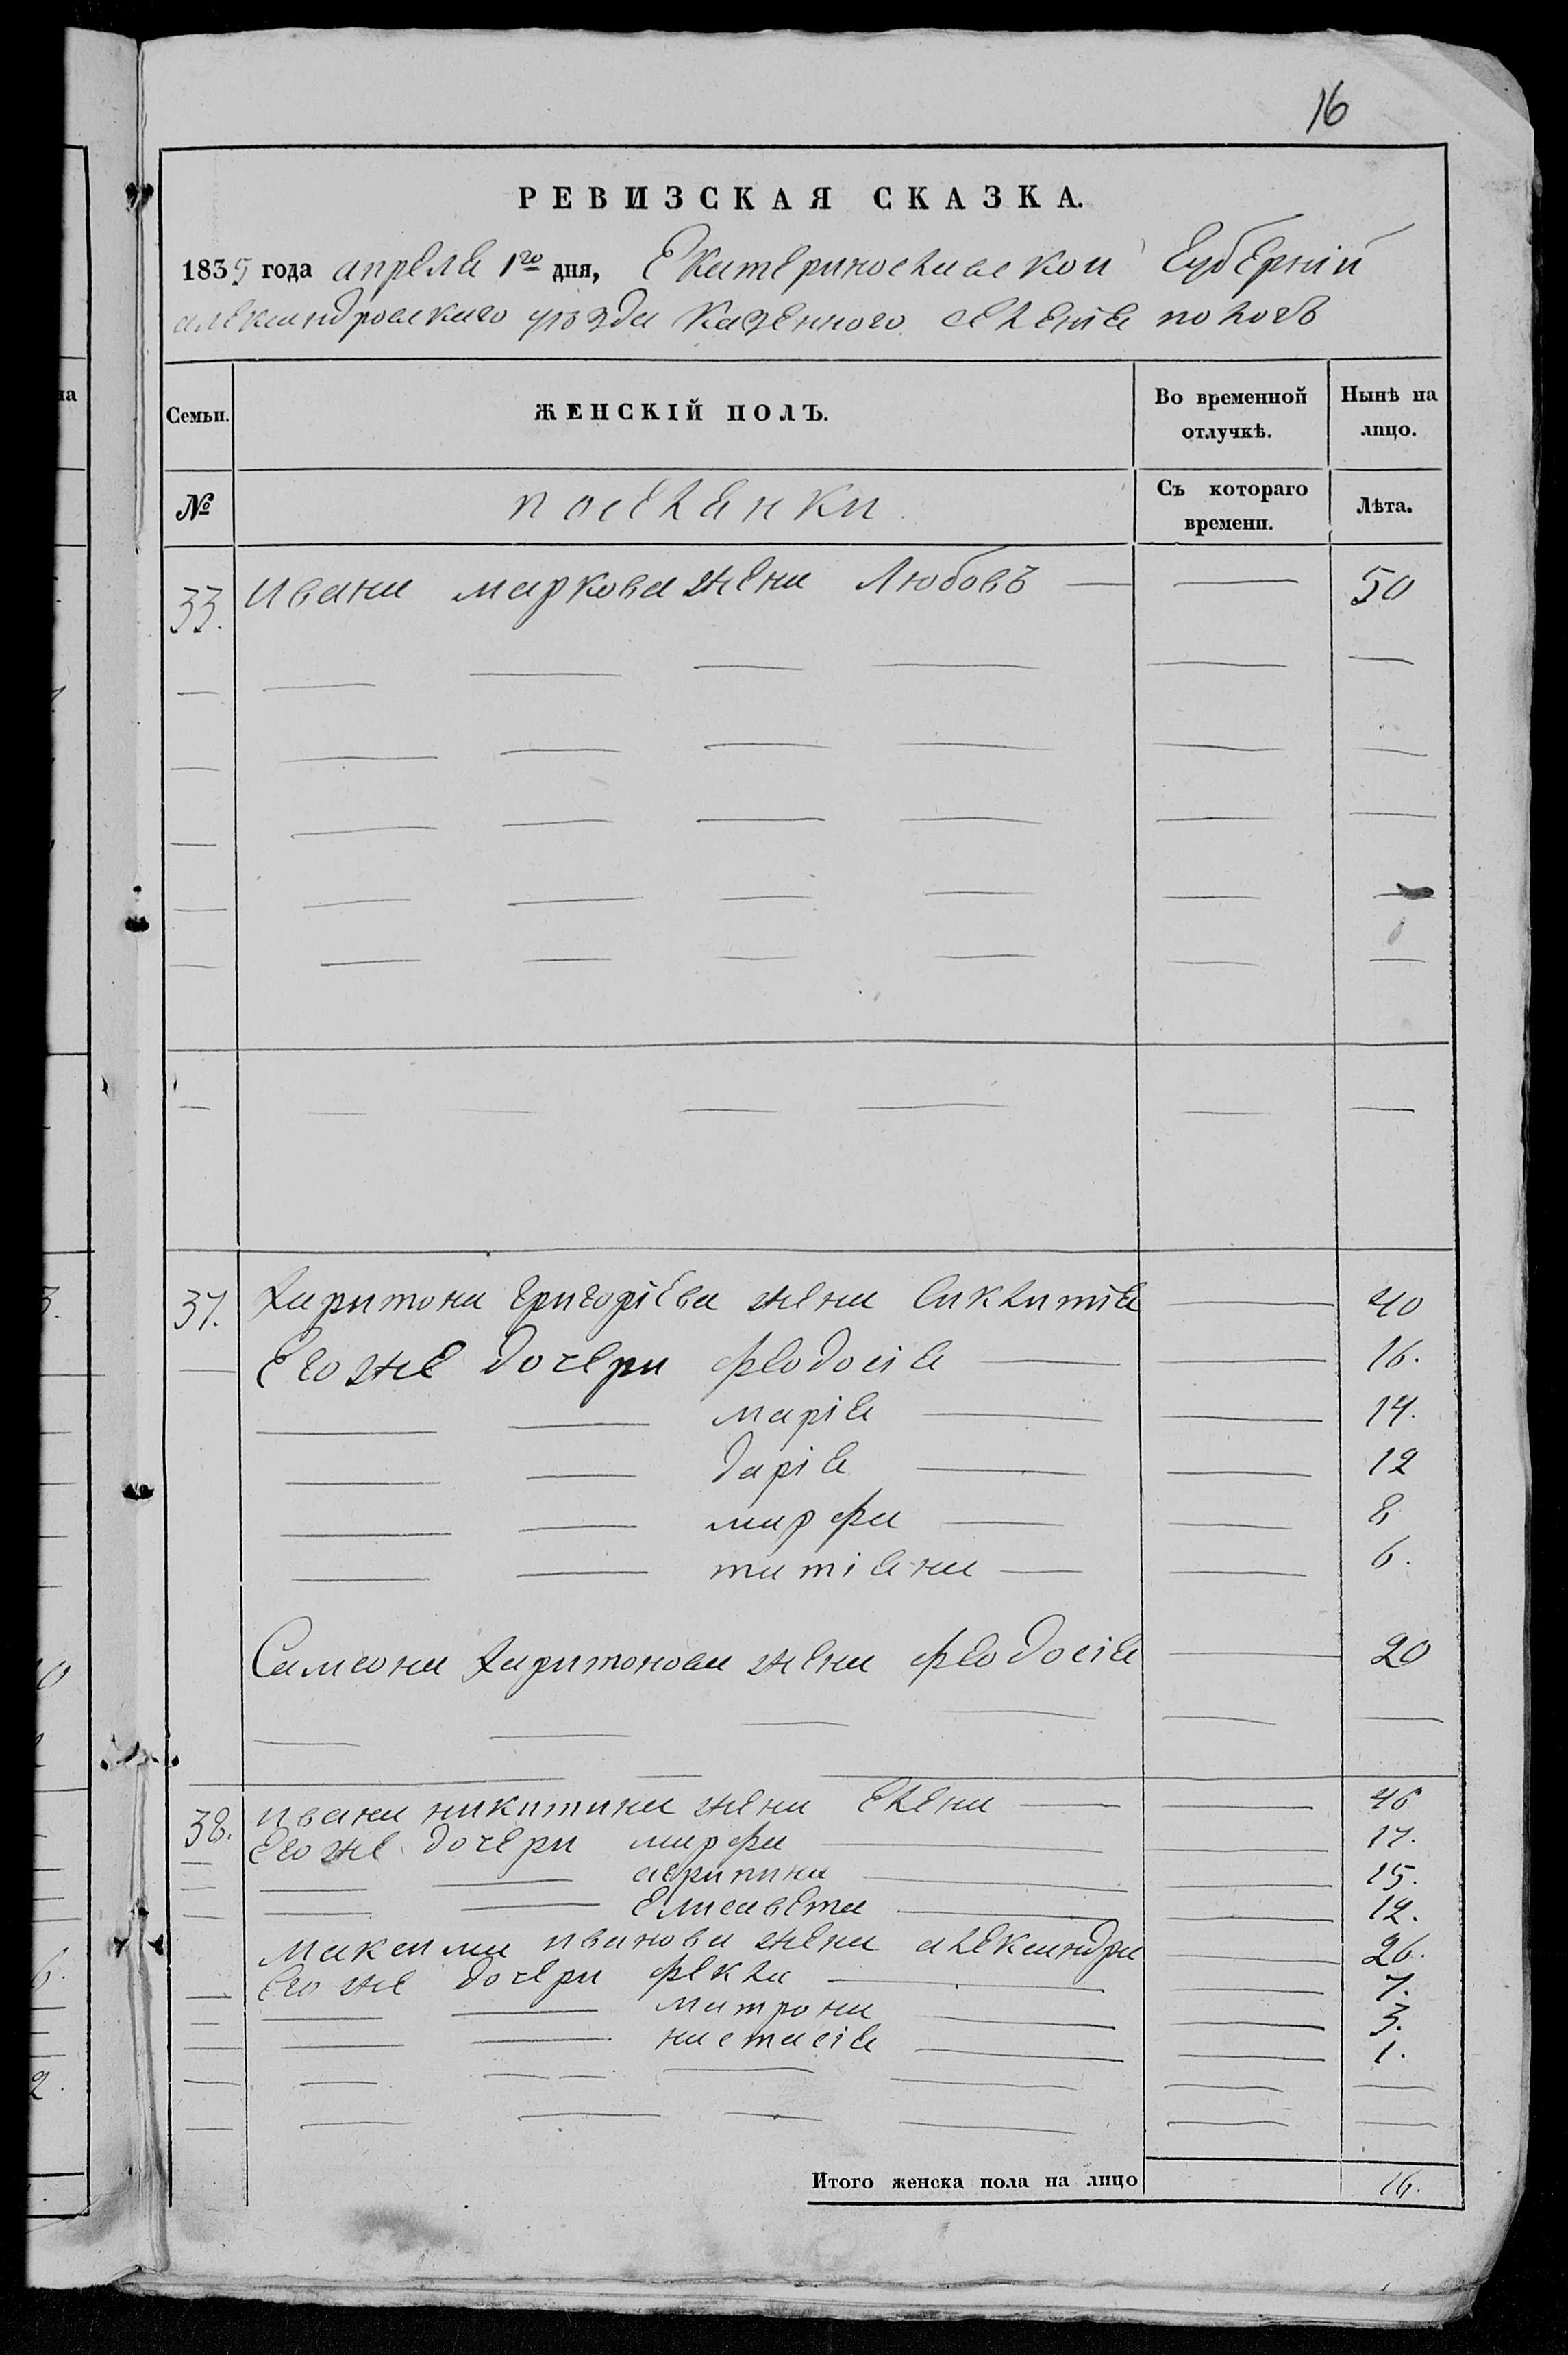 16
РЕВИЗСКАЯ СКАЗКА.
1835 года апреля 1го дня, Екатеринославской Губерній
александровскаго уѣзда Казенного селенія пологъ
на
Семьи. ЖЕНСКІЙ ПОЛЪ. Во временной отлучкѣ. Нынѣ на лицо.
№ поселянки Съ котораго времени. Лѣта.
33. ивана маркова жена Любовъ — — 50
37. Харитона григоріева жена Евклитія — 40
Его же дочери феодосія — — 16.
марія — — 14.
дарія — — 12
марфа — — 8
татіяна — — 6.
Самсона Харитонова жена феодосія — 20
38. ивана никитина жена елена — — 46
Его же дочери марфа — — 17.
агрипина — — 15.
елисавета — — 12.
максима иванова жена александра — 26.
Его же дочери фекла — — 7.
матрона — — 3.
настасія — — 1.
Итого женска пола на лицо 16.